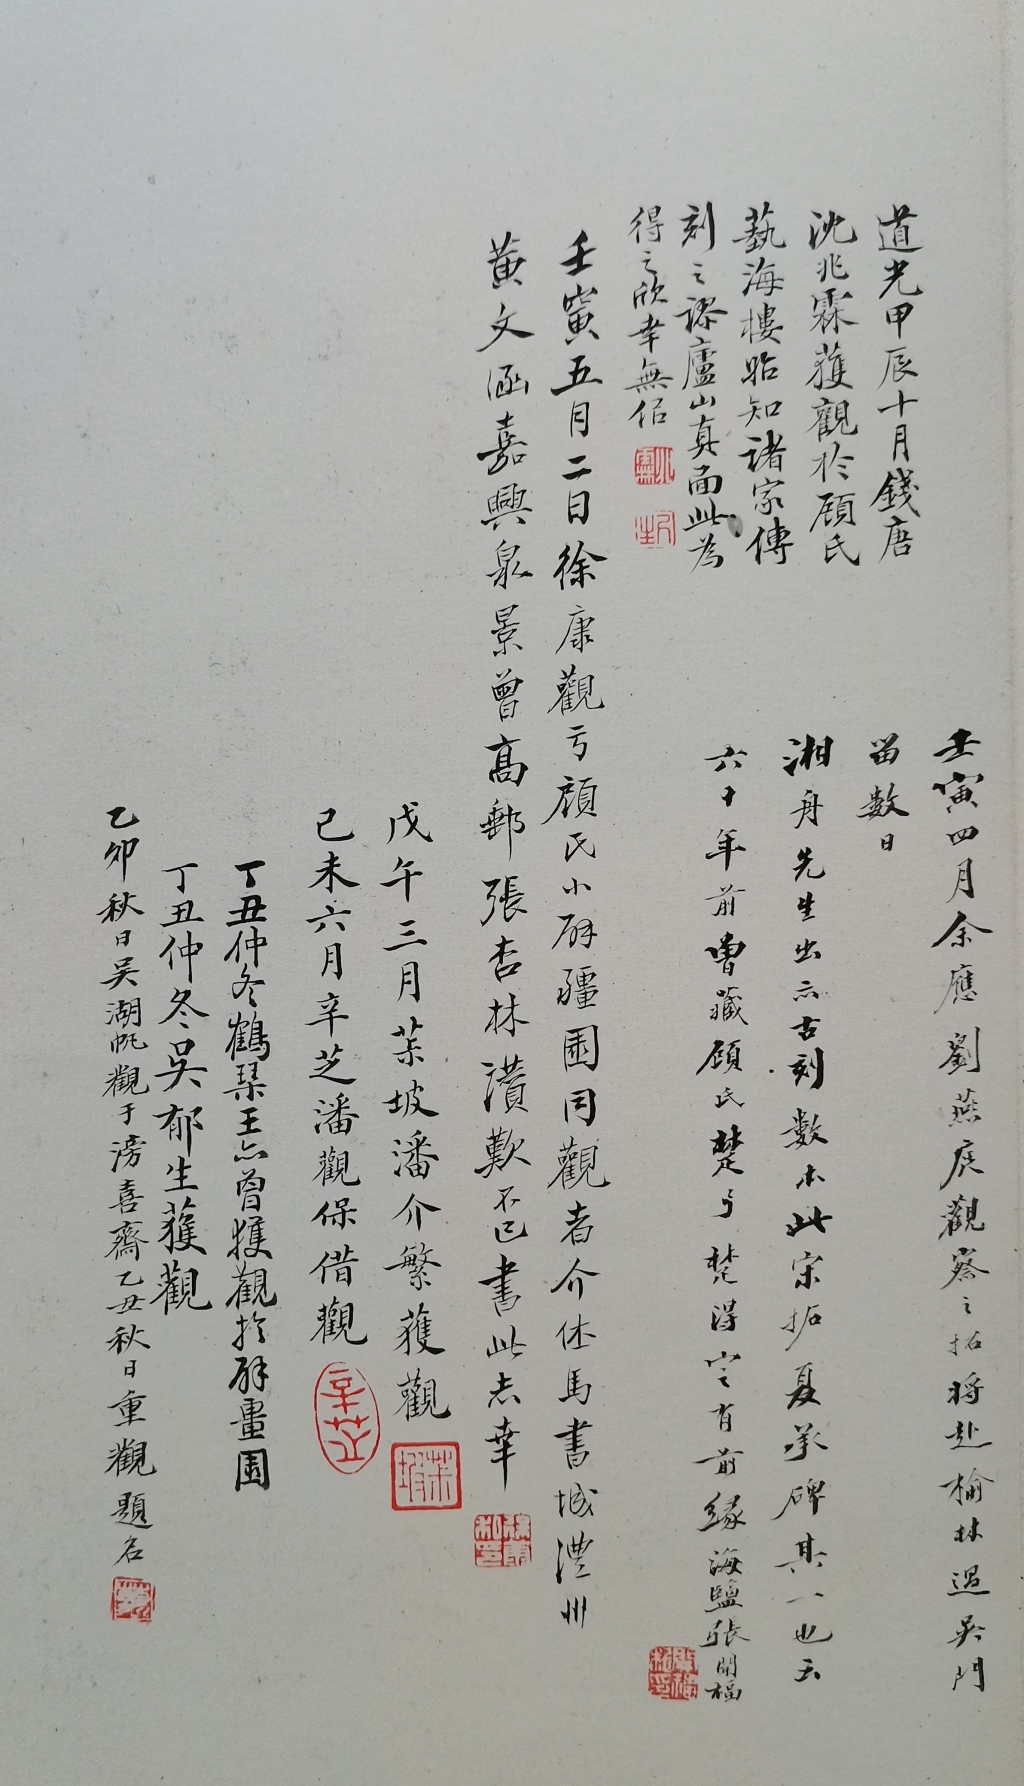 道光甲辰十月錢唐
沈兆霖獲觀於顧氏
藝海樓貽知諸家傳
刻之謬廬山真面此為
得之欣幸無似
壬寅四月余應劉燕庭觀察之招將赴榆林過吳門
留數日
湘舟先生出示古刻數本此宋拓夏承碑其一也云
六十年前曾藏顧氏楚弓楚得定有前緣海鹽張開福
壬寅五月二日徐康觀于顧氏小辟疆園同觀者介休馬書城澧州
黃文涵嘉興泉景曾高郵張杏林讚歎不已書此志幸
戊午三月茮坡潘介繁獲觀
茮坡
己未六月辛芝潘觀保借觀
辛芝
丁丑仲冬鶴琹王亦曾獲觀於辟畺園
丁丑仲冬吳郁生獲觀
乙卯秋日吳湖帆觀于滂喜齋乙丑秋日重觀題名